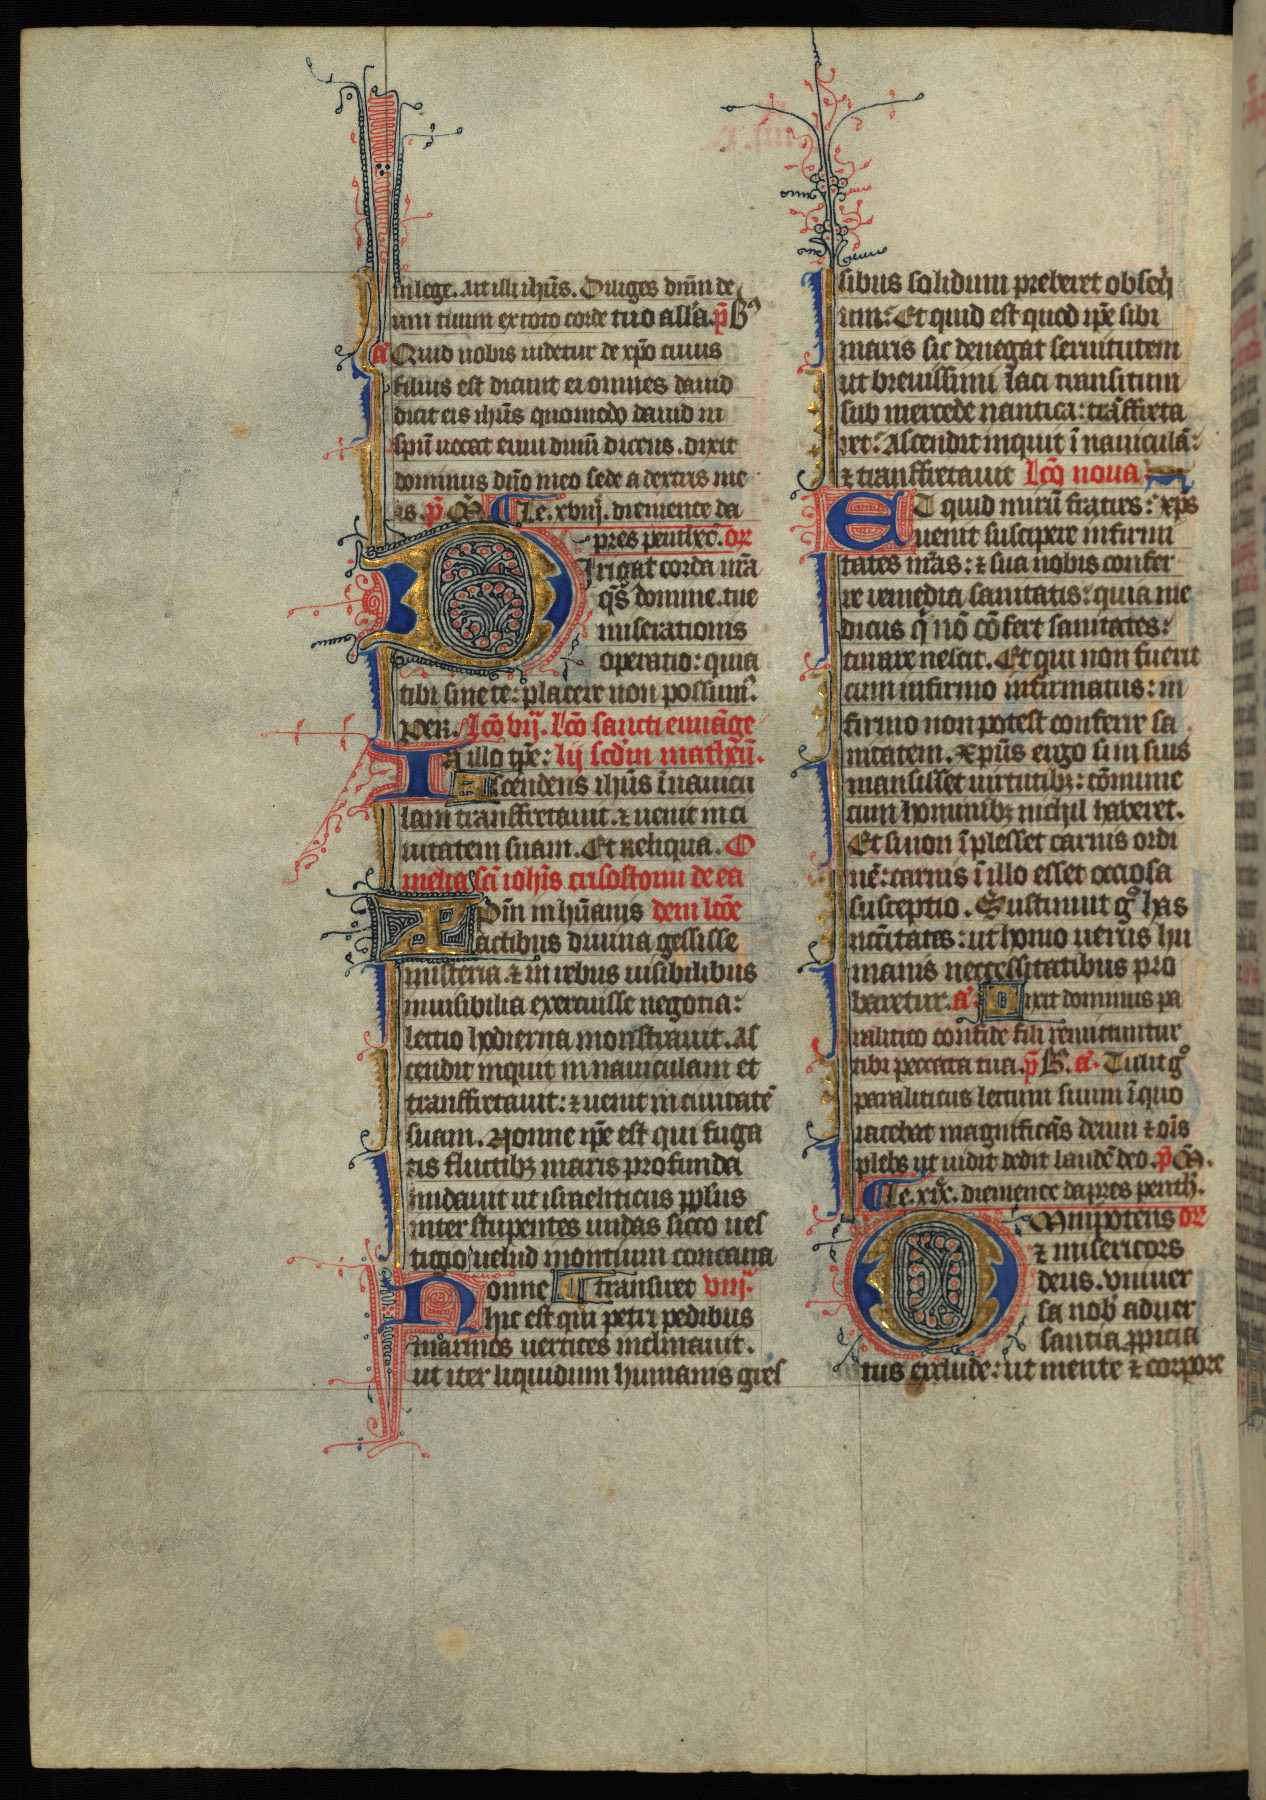 in lege. Ait illi ih̄us. Diliges dn̄m de
um tuum ex toto corde tuo all'a. p̄ B⁹
a Quid uobis uidetur de xp̄o cuius
filius est dicunt ei omnes dauid
dicit eis ih̄us quomodo dauid in
sp̄u uocat eum dn̄m dicens. dixit
dominus dn̄o meo sede a dextris me
is. p̄ M̄. Le. xviij. diemence da
pres penthec̄. or
Dirigat corda nr̄a
q̄s domine. tue
miserationis
operatio: quia
tibi sine te: placere non possum⁹.
Per. lcō vij. Lcō sancti euuāge
In illo tp̄e: lij scd̄m matheū.
Ascendens ih̄us ī nauicu
lam transfretauit. ⁊ uenit in ci
uitatem suam. Et reliqua. O
melia scī ioh̄is crisostomi de ea
XPm̄ in hūanis dem lcōe
actibus diuina gessisse
misteria. ⁊ in rebus uisibilibus
inuisibilia exercuisse negotia:
lectio hodierna monstrauit. As
cendit inquit in nauiculam et
transfretauit: ⁊ uenit in ciuitatē
suam. Nonne ip̄e est qui fuga
tis fluctibꝫ maris profunda
nudauit ut israeliticus pp̄lus
inter stupentes undas sicco ues
tigio uelud montium concaua
Nonne transiret viij.
hic est qui petri pedibus
marinos uertices inclinauit.
ut iter liquidum humanis gres
sibus solidum preberet obseq̄
um: Et quid est quod ip̄e sibi
maris sic denegat seruitutem
ut breuissimi laci transitum
sub mercede nautica: trāsfreta
ret: Ascendit inquit ī nauiculā:
⁊ transfretauit Lcō nona
ET quid mirū fratres: xp̄s
uenit suscipere infirmi
tates nr̄as: ⁊ sua nobis confer
re remedia sanitatis: quia me
dicus q̄ nō cōfert sanitates:
curare nescit. Et qui non fuerit
cum infirmo infirmatus: in
firmo non potest conferre sa
nitatem. Xp̄us ergo si in suis
mansisset uirtutibꝫ: cōmune
cum hominibꝫ nichil haberet.
Et si non īplesset carnis ordi
nē: carnis ī illo esset occiosa
susceptio. Sustinuit gͦ has
nec̄itates: ut homo uerus hu
manis neccessitatibus pro
baretur. a Dixit dominus pa
ralitico confide fili remittuntur
tibi peccata tua. p̄ B. a. Tulit gͦ
paraliticus lectum suum ī quo
iacebat magnificās deum ⁊ oīs
plebs ut uidit dedit laudē deo. p̄ M̄.
Le. xix. diemence dapres penth̄.
Omnipotens or
⁊ misericors
deus. vniuer
sa nob̄ aduer
santia ꝓpicia
tus exclude: ut mente ⁊ corpore